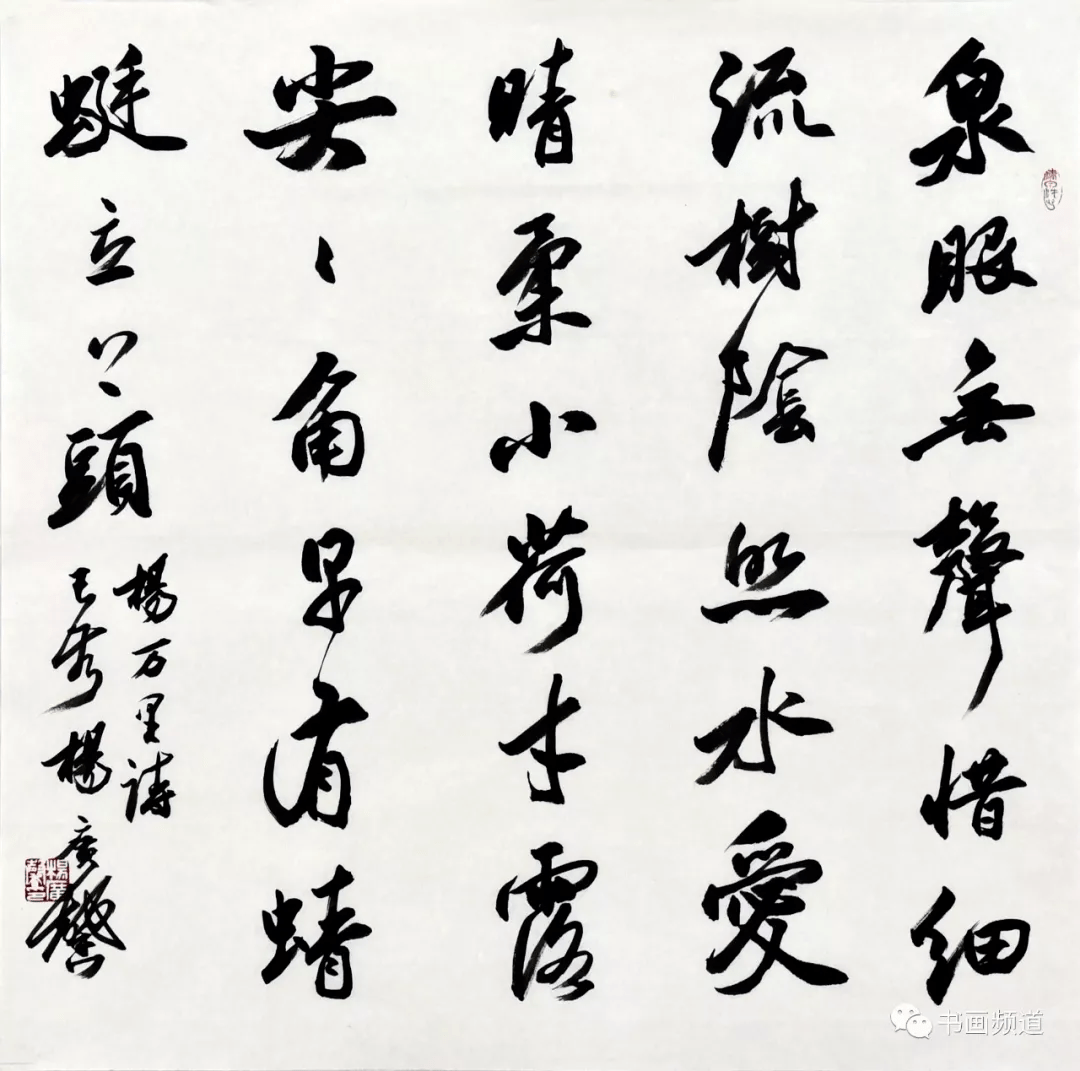 泉眼無聲惜細
流樹陰照水愛
晴柔小荷才露
尖〻角早有蜻
蜓立上頭
楊万里詩
己亥楊广馨
书画频道